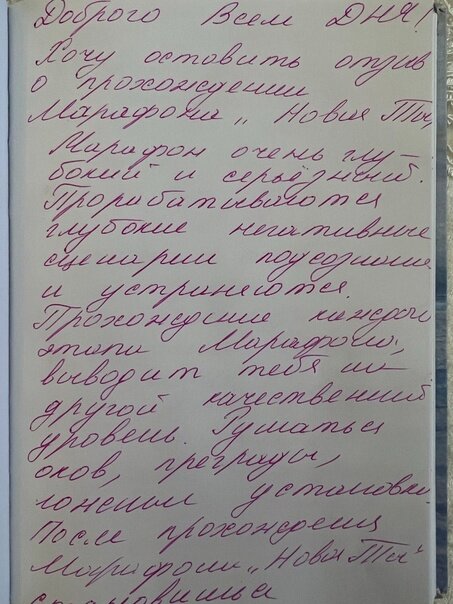 Доброго Всем ДНЯ!
Хочу оставить отзыв
о прохождении
Марафона „ Новая Ты,
Марафон очень глу-
бокий и серьёзный.
Прорабатываются
глубокие негативные
сценарии подсознания
и устраняются.
Прохождение каждого
этапа Марафона,
выводит тебя на
другой качественный
уровень. Рушаться
оков, преграды,
ложные установки.
После прохождения
Марафона „Новая Ты"
становишься